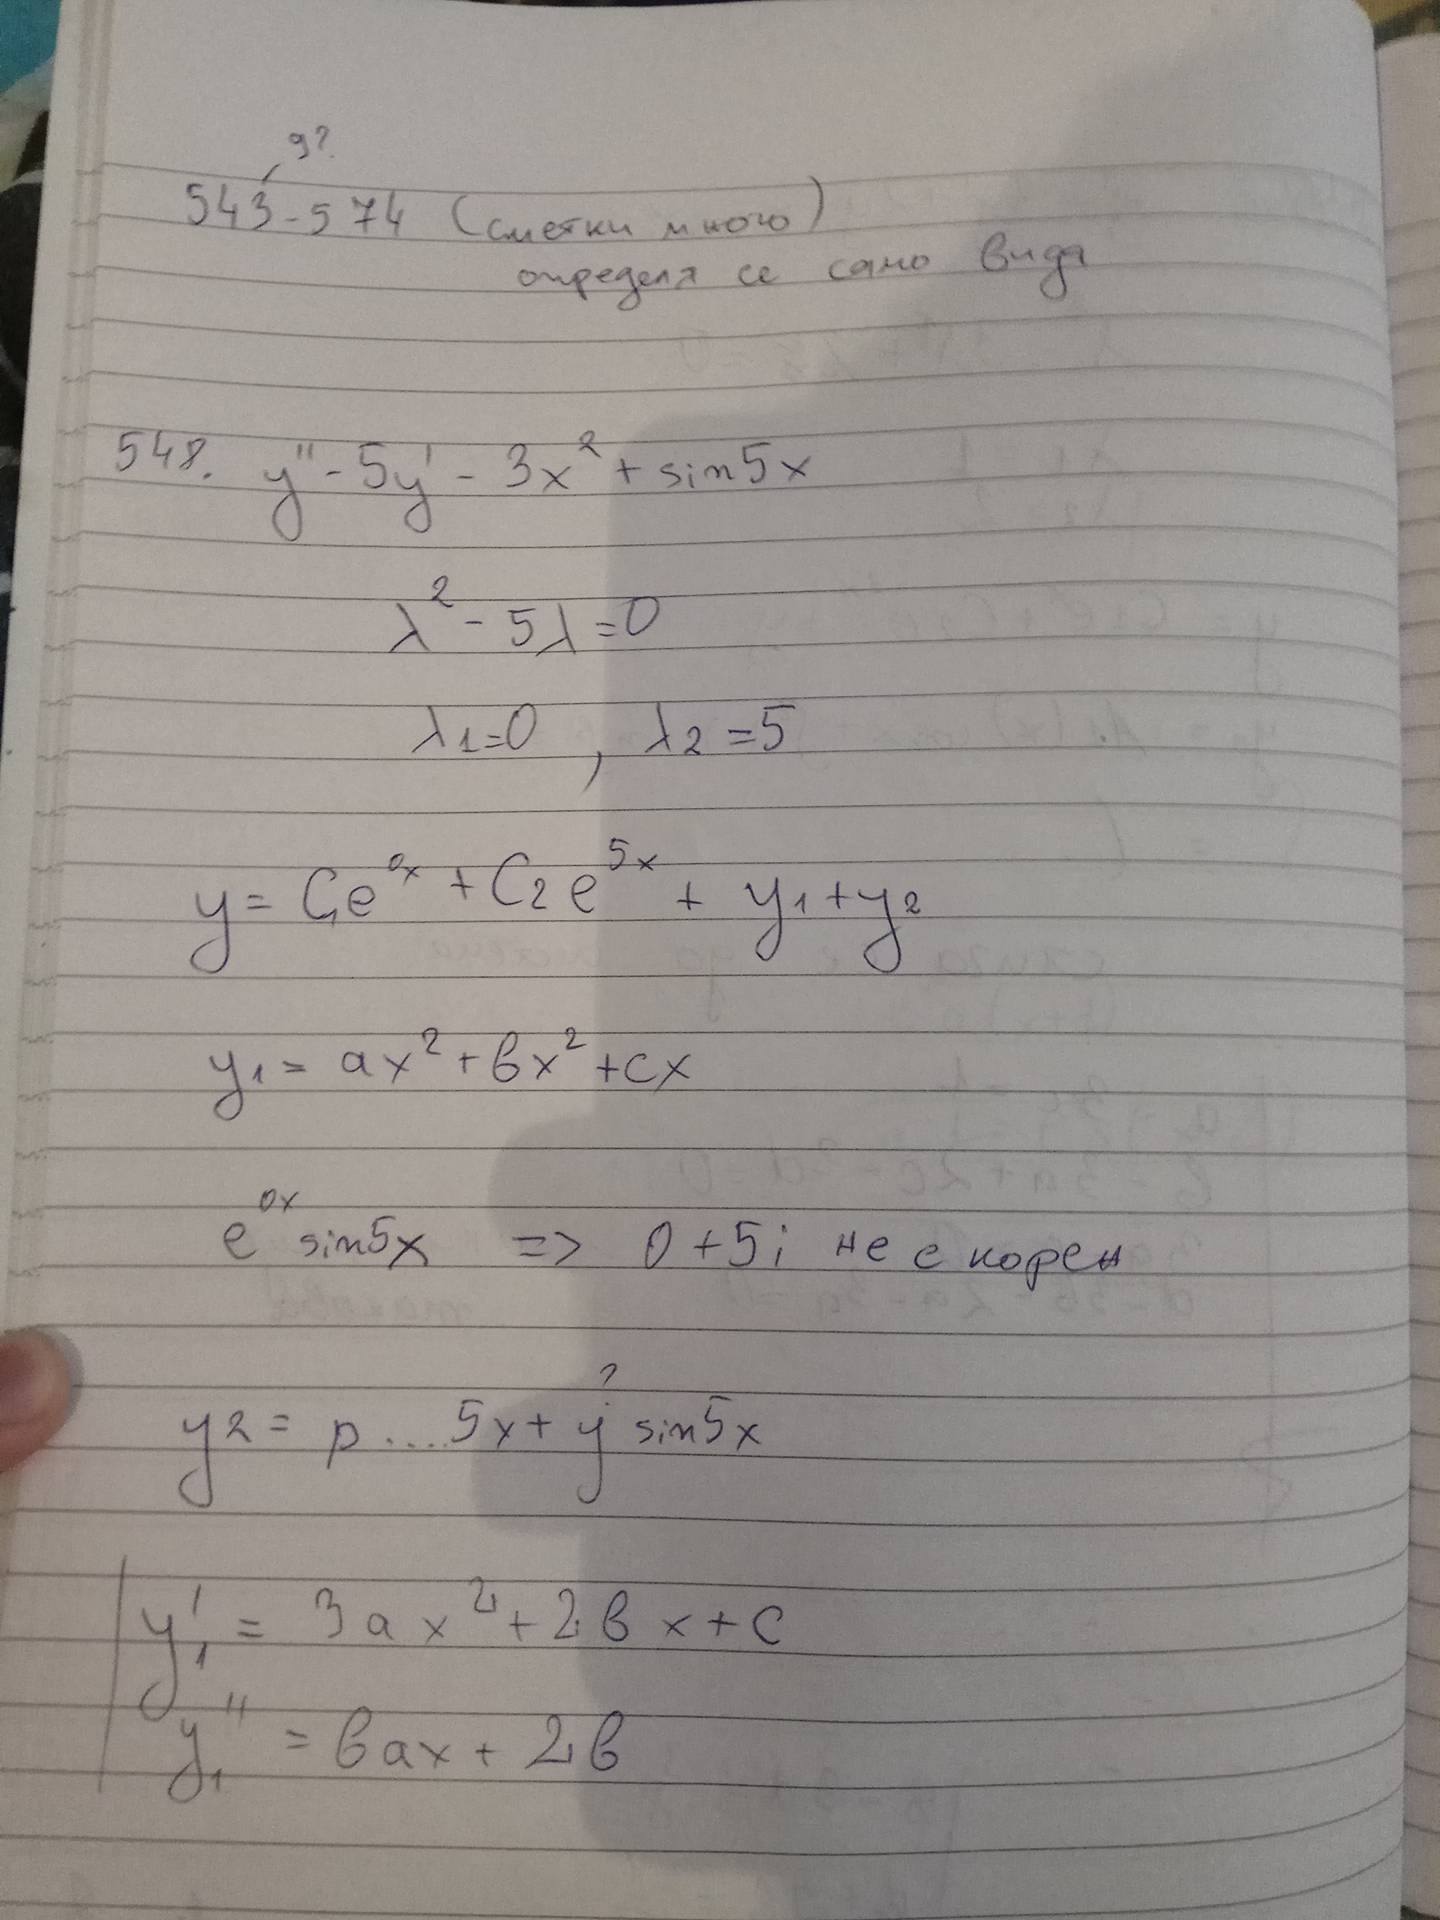 9?
543-574 (сметки много)
определя се само вида
548. y'' - 5y' - 3x² + sin5x
λ² - 5λ = 0
λ1=0 , λ2=5
y = C₁e^0x + C2e^5x + y1 + y2
y1 = ax² + bx² + cx
e^0x sin5x => 0+5i не е корен
?
y2 = p .... 5x + y sin5x
y₁' = 3ax² + 2bx + c
y₁'' = 6ax + 2b